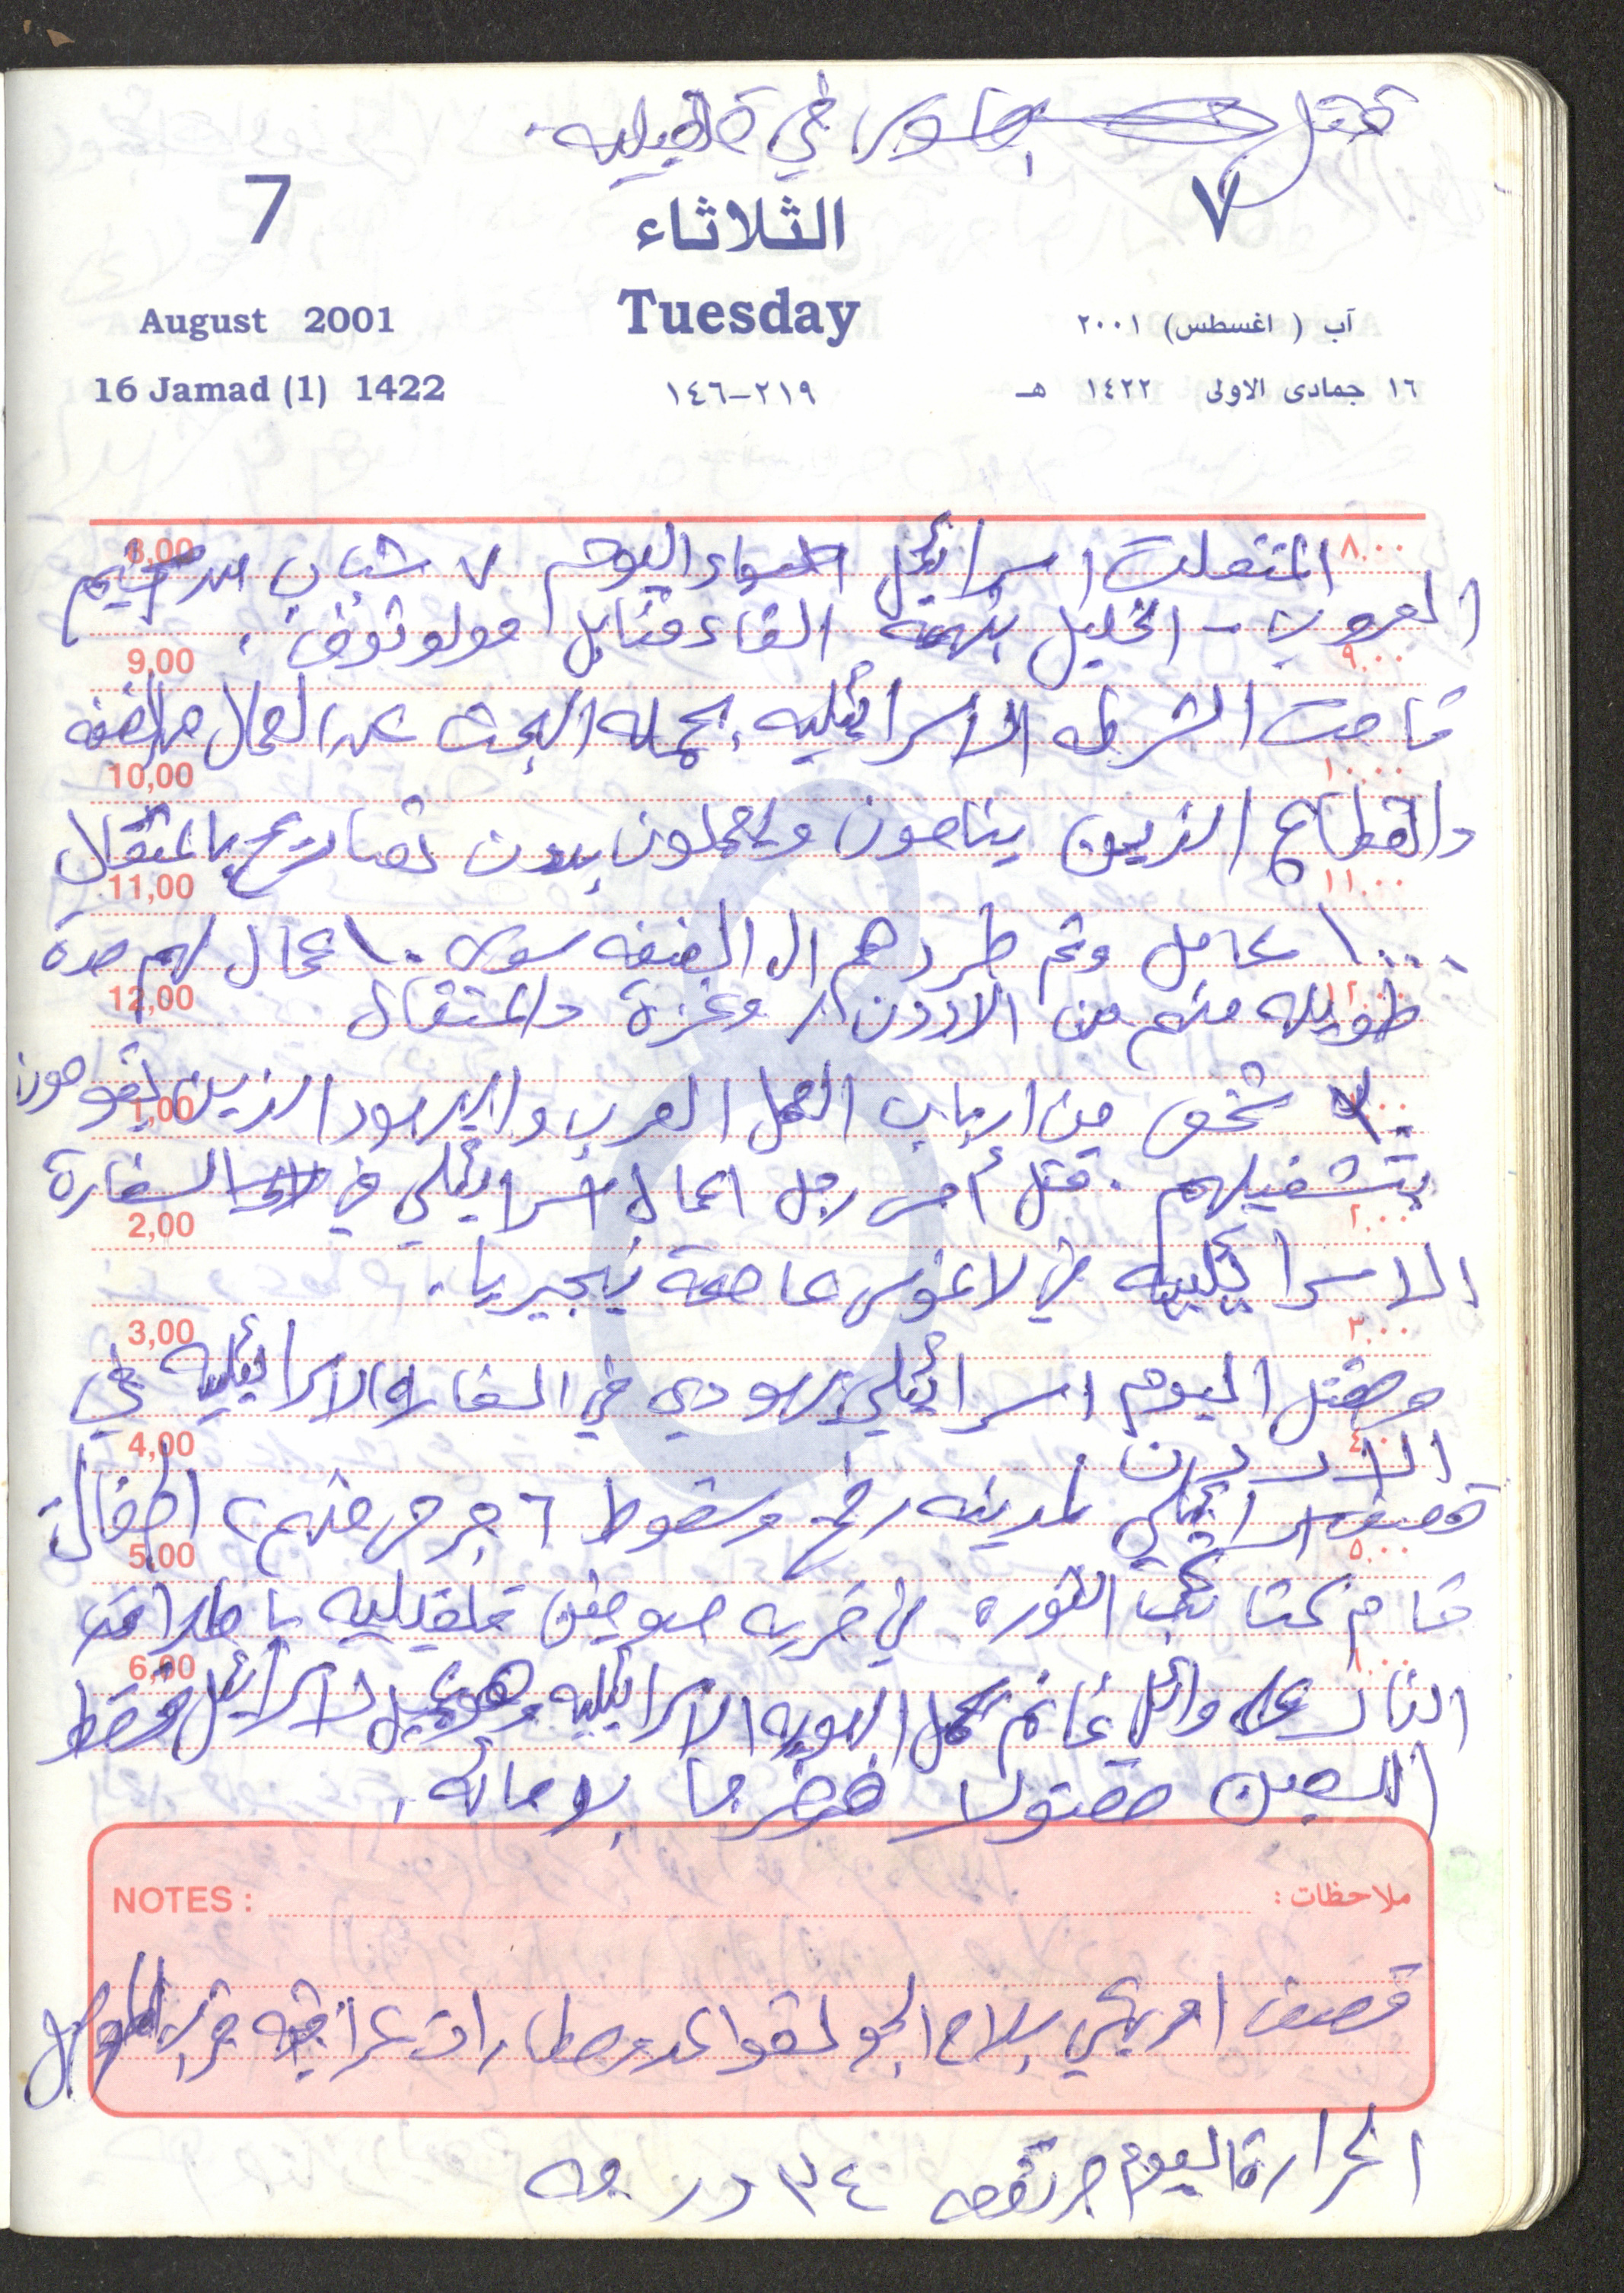 مقتل جاسوس في قلقيليه.
7 الثلاثاء ٧
August 2001 Tuesday آب ( اغسطس) ٢٠٠١
16 Jamad (1) 1422 ٢١٩-١٤٦ ١٦ جمادى الاولى ١٤٢٢ هـ
8,00 ٨.٠٠
اعتقلت اسرائيل اليوم ٧ شباب من مخيم
العروب - الخليل بتهمة القاء قنابل مولوتوف.
9,00 ٩.٠٠
قامت الشرطه الاسرائيليه بحمله البحث عن العمال من الضفه
10,00 ١٠.٠٠
والقطاع الذين ينامون ويعملون بدون تصاريح باعتقال
11,00 ١١.٠٠
١٠٠٠ عامل وتم طردهم الى الضفه سوى ١٠ عمال لهم مدة
12,00 ١٢.٠٠
طويله منهم من الاردن وغزة واعتقال
1,00 ١.٠٠
٣٠ شخص من ارباب العمل العرب واليهود الذين يقومون
بتشغيلهم. قتل أمس رجل اعمال اسرائيلي في السفارة
2,00 ٢.٠٠
الاسرائيليه في لاغوس عاصمة نيجيريا.
3,00 ٣.٠٠
ومقتل اليوم اسرائيلي يهودي في السفاره الاسرائيليه في
4,00 ٤.٠٠
الاردن
قصف اسرائيلي لمدينه رفح وسقوط ٦ جرحى منهم ٢ اطفال
5,00 ٥.٠٠
قام كتائب الثوره في قريه صوفين قلقيليه باطلاق
6,00 ٦.٠٠
النار على وائل غانم يحمل الهويه الاسرائيليه وهو عميل لاسرائيل فسقط
اللعين مقتولا مضرجا بدمائه.
NOTES : ملاحظات :
قصف امريكي بسلاح الجو لقواعد ومطارات عراقيه قرب الموصل
الحرارة اليوم مرتفعه ٣٤ درجه